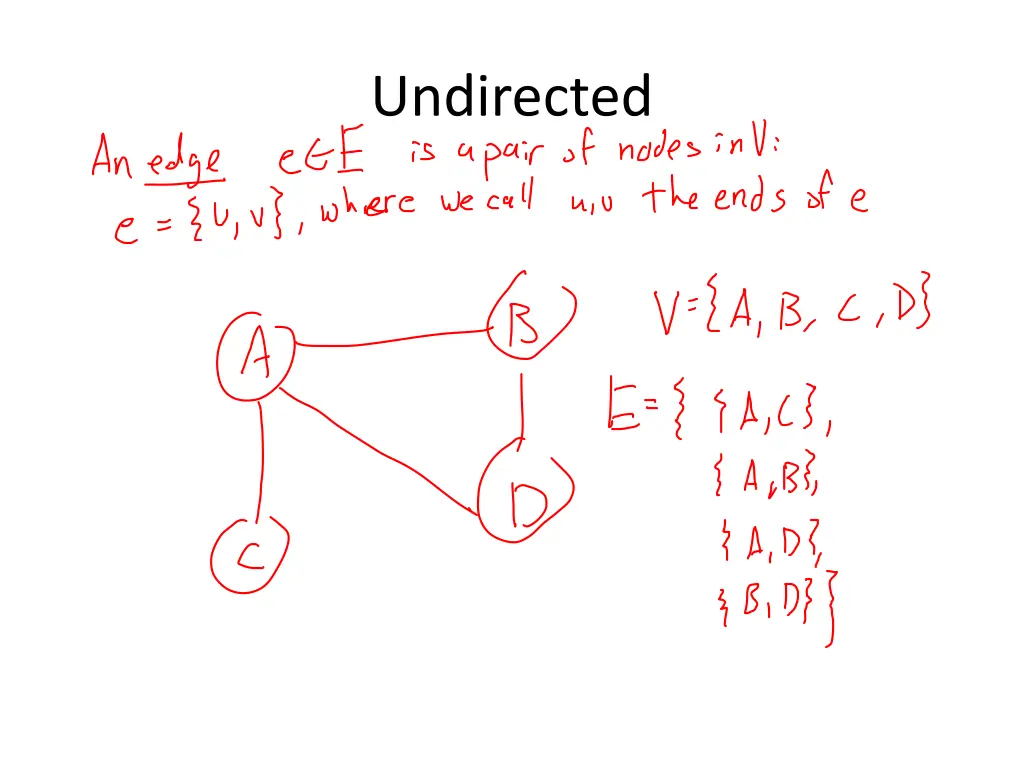 Undirected
An edge e∈E is a pair of nodes in V:
e = {u, v}, where we call u,v the ends of e
B
V={A, B, C, D}
A
E={ {A,C},
{A,B},
D
{A,D},
C
{B,D}}